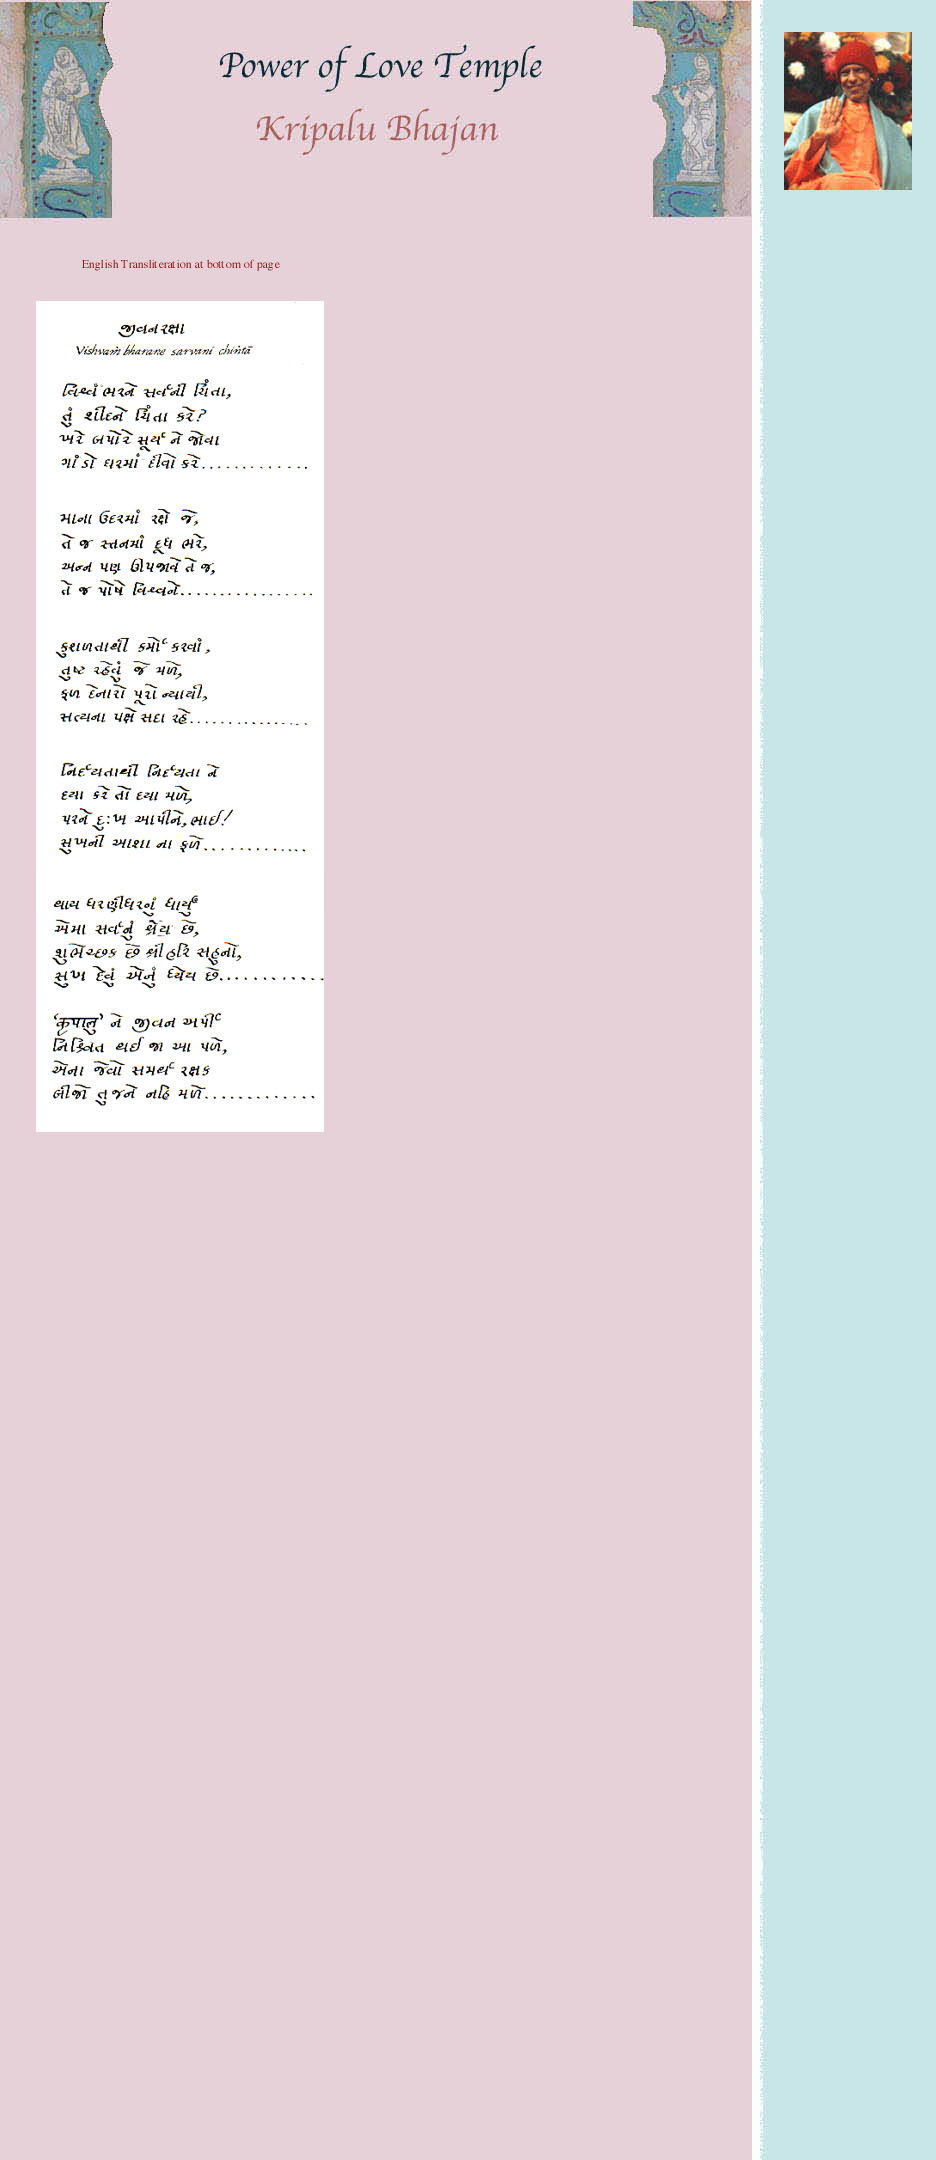 Power of Love Temple
Kripalu Bhajan
English Transliteration at bottom of page
જીવનરક્ષા
Vishvaṁ bharane sarvani chiṅtā
વિશ્વંભરને સર્વની ચિંતા,
તું શીદને ચિંતા કરે?
ખરે બપોરે સૂર્ય ને જોવા
ગાંડો ઘરમાં દીવો કરે.............
માના ઉદરમાં રક્ષે જે,
તે જ સ્તનમાં દૂધ ભરે,
અન્ન પણ ઊપજાવે તે જ,
તે જ પોષે વિશ્વને.................
કુશળતાથી કર્મો કરવાં,
તુષ્ટ રહેવું જે મળે,
ફળ દેનારો પૂરો ન્યાયી,
સત્યના પક્ષે સદા રહે...............
નિર્દયતાથી નિર્દયતા ને
દયા કરે તો દયા મળે,
પરને દુ:ખ આપીને, ભાઈ!
સુખની આશા ના ફળે.............
થાય ધરણીધરનું ધાર્યું
એમા સર્વનું શ્રેય છે,
શુભેચ્છક છે શ્રીહરિ સહુનો,
સુખ દેવું એનું ધ્યેય છે............
'कृपालु' ને જીવન અર્પી
નિશ્ચિત થઈ જા આ પળે,
એના જેવો સમર્થ રક્ષક
બીજો તુજને નહિ મળે.............